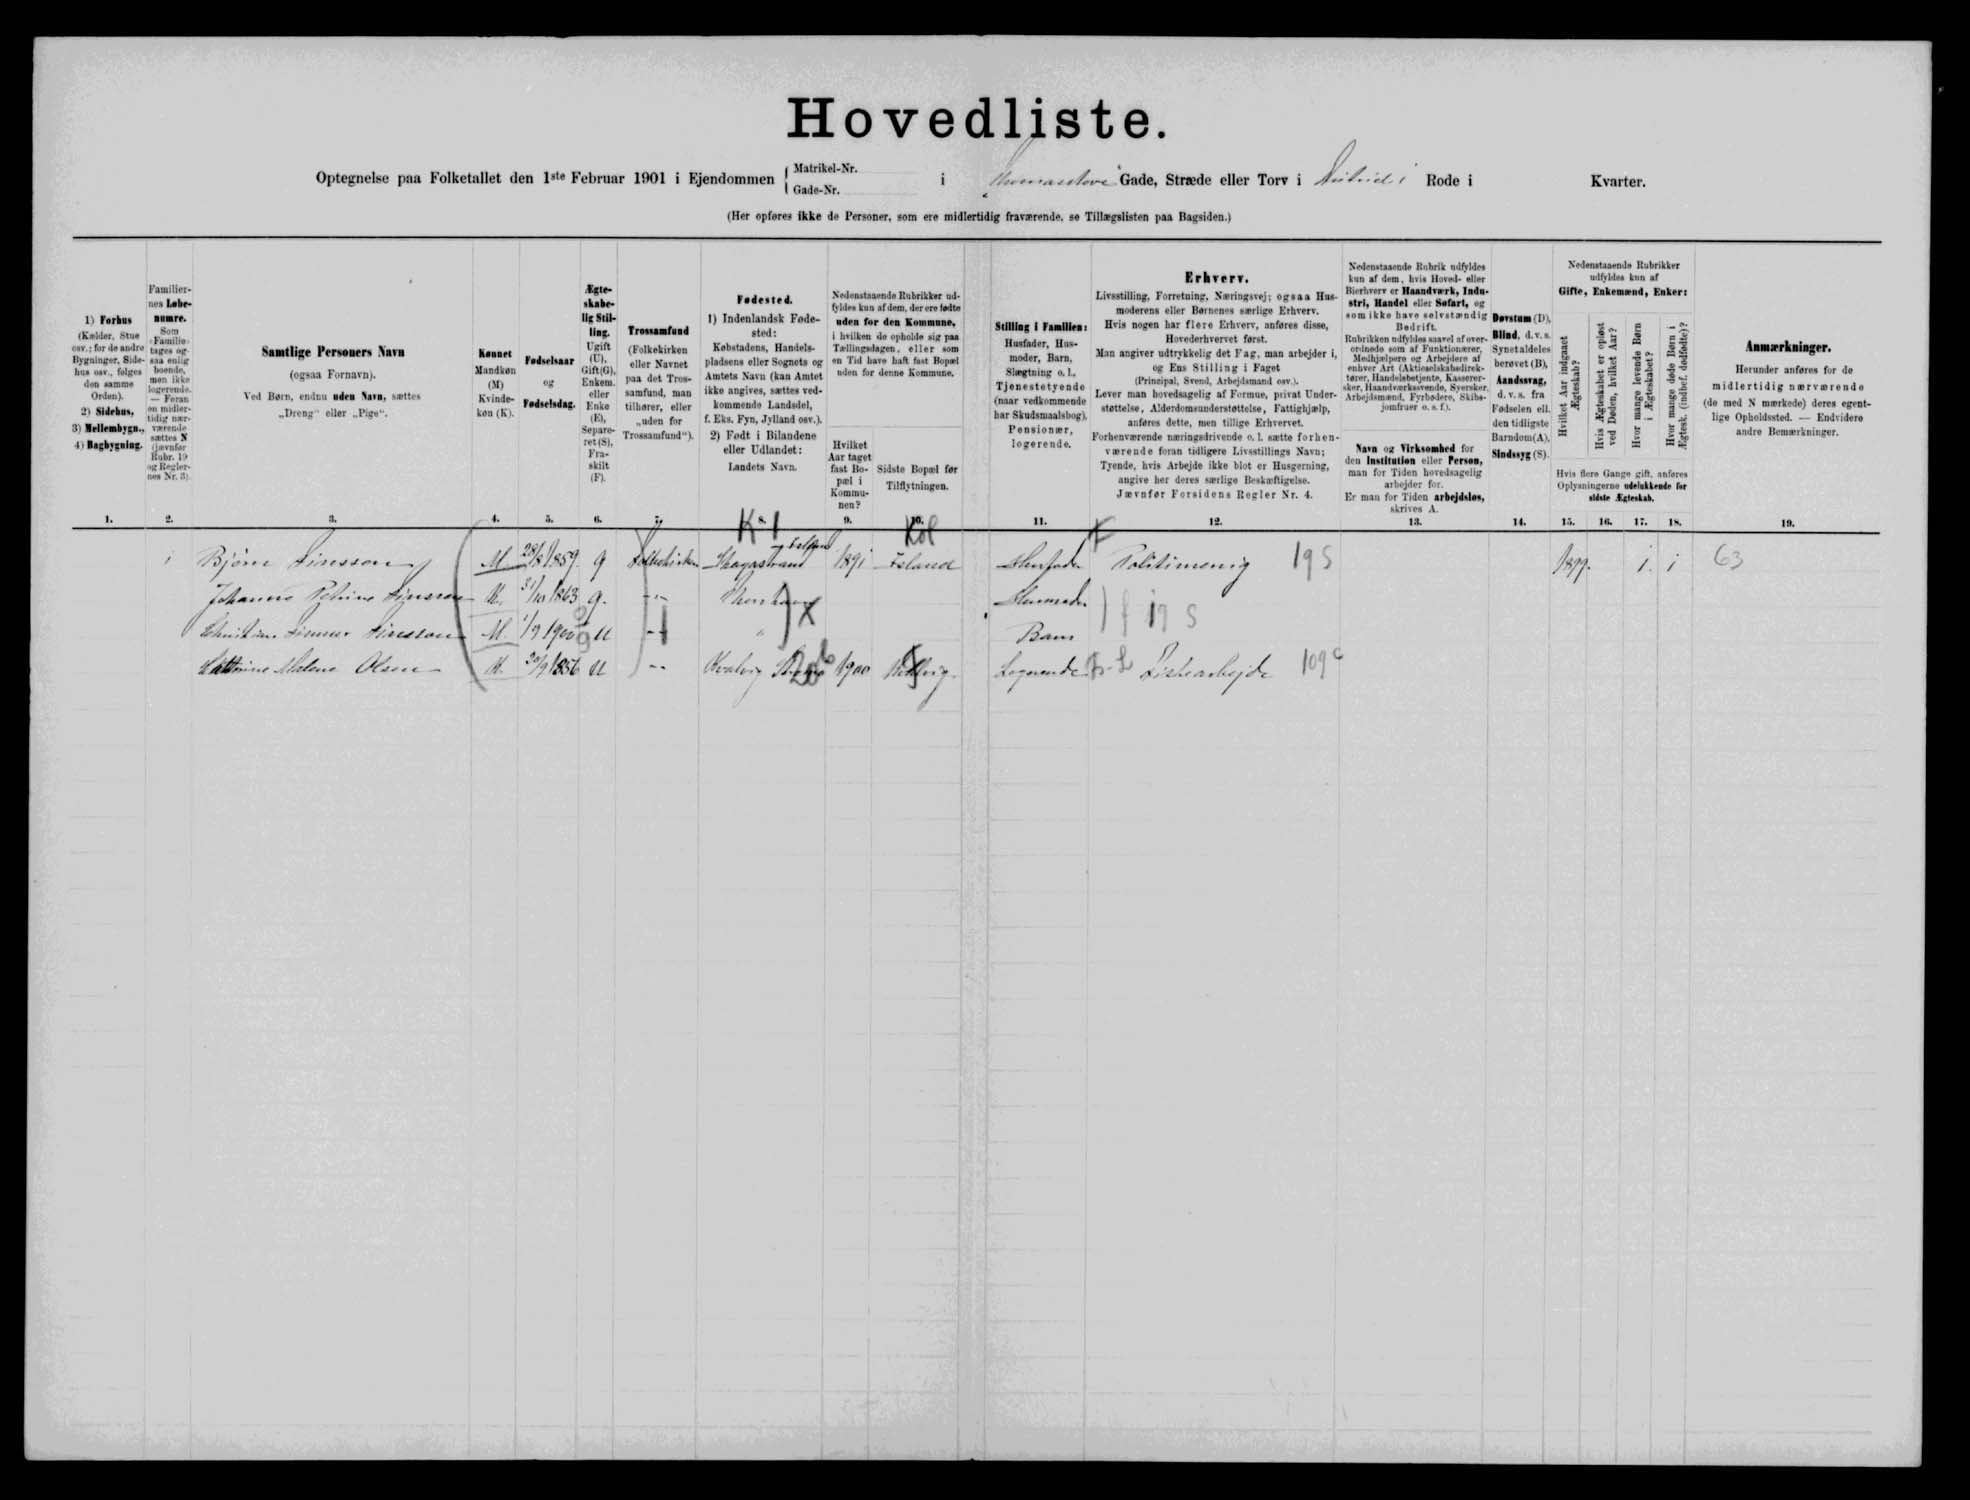 Hovedliste.
Optegnelse paa Folketallet den 1ste Februar 1901 i Ejendommen { Matrikel-Nr. Gade-Nr. i Gade, Stræde eller Torv i Rode i Kvarter.
(Her opføres ikke de Personer, som ere midlertidig fraværende, se Tillægslisten paa Bagsiden.)
1) Forhus
(Kælder, Stue
osv.; for de andre
Bygninger, Side-
hus osv., følges
den samme
Orden).
2) Sidehus,
3) Mellembygn.,
4) Bagbygning.
Familier-
nes Løbe-
numre.
Som
„Familie“
tages og-
saa enlig
boende,
men ikke
logerende.
— Foran
en midler-
tidig nær-
værende
sættes N
(jævnfør
Rubr. 19
og Regler-
nes Nr. 3).
Samtlige Personers Navn
(ogsaa Fornavn).
Ved Børn, endnu uden Navn, sættes
„Dreng“ eller „Pige“.
Kønnet
Mandkøn
(M)
Kvinde-
køn (K).
Fødselsaar
og
Fødselsdag.
Ægte-
skabe-
lig Stil-
ling.
Ugift
(U),
Gift(G),
Enkem.
eller
Enke
(E),
Separe-
ret (S),
Fra-
skilt
(F).
Trossamfund
(Folkekirken
eller Navnet
paa det Tros-
samfund, man
tilhører, eller
„uden for
Trossamfund“).
Fødested.
1) Indenlandsk Føde-
sted:
Købstadens, Handels-
pladsens eller Sognets og
Amtets Navn (kan Amtet
ikke angives, sættes ved-
kommende Landsdel,
f. Eks. Fyn, Jylland osv.).
2) Født i Bilandene
eller Udlandet:
Landets Navn.
Nedenstaaende Rubrikker ud-
fyldes kun af dem, der ere fødte
uden for den Kommune,
i hvilken de opholde sig paa
Tællingsdagen, eller som
en Tid have haft fast Bopæl
uden for denne Kommune.
Hvilket
Aar taget
fast Bo-
pæl i
Kommu-
nen?
Sidste Bopæl før
Tilflytningen.
Stilling i Familien:
Husfader, Hus-
moder, Barn,
Slægtning o. l.,
Tjenestetyende
(naar vedkommende
har Skudsmaalsbog),
Pensionær,
logerende.
Erhverv.
Livsstilling, Forretning, Næringsvej; ogsaa Hus-
moderens eller Børnenes særlige Erhverv.
Hvis nogen har flere Erhverv, anføres disse,
Hovederhvervet først.
Man angiver udtrykkelig det Fag, man arbejder i,
og Ens Stilling i Faget
(Principal, Svend, Arbejdsmand osv.).
Lever man hovedsagelig af Formue, privat Under-
støttelse, Alderdomsunderstøttelse, Fattighjælp,
anføres dette, men tillige Erhvervet.
Forhenværende næringsdrivende o. l. sætte forhen-
værende foran tidligere Livsstillings Navn;
Tyende, hvis Arbejde ikke blot er Husgerning,
angive her deres særlige Beskæftigelse.
Jævnfør Forsidens Regler Nr. 4.
Nedenstaaende Rubrik udfyldes
kun af dem, hvis Hoved- eller
Bierhverv er Haandværk, Indu-
stri, Handel eller Søfart, og
som ikke have selvstændig
Bedrift.
Rubrikken udfyldes saavel af over-
ordnede som af Funktionærer,
Medhjælpere og Arbejdere af
enhver Art (Aktieselskabsdirek-
tører, Handelsbetjente, Kasserer-
sker, Haandværkssvende, Syersker,
Arbejdsmænd, Fyrbødere, Skibs-
jomfruer o. s. f.).
Navn og Virksomhed for
den Institution eller Person,
man for Tiden hovedsagelig
arbejder for.
Er man for Tiden arbejdsløs,
skrives A.
Døvstum (D),
Blind, d. v. s.
Synet aldeles
berøvet (B),
Aandssvag,
d. v. s. fra
Fødselen ell.
den tidligste
Barndom(A),
Sindssyg (S).
Nedenstaaende Rubrikker
udfyldes kun af
Gifte, Enkemænd, Enker:
Hvilket Aar indgaaet
Ægteskab?
Hvis Ægteskabet er opløst
ved Døden, hvilket Aar?
Hvor mange levende Børn
i Ægteskabet?
Hvor mange døde Børn i
Ægtesk. (indbef. dødfødte)?
Hvis flere Gange gift, anføres
Oplysningerne udelukkende for
sidste Ægteskab.
Anmærkninger.
Herunder anføres for de
midlertidig nærværende
(de med N mærkede) deres egent-
lige Opholdssted. — Endvidere
andre Bemærkninger.
1. 2. 3. 4. 5. 6. 7. 8. 9. 10. 11. 12. 13. 14. 15. 16. 17. 18. 19.
1 Bjørn M 28/8 1859 g Folkekirken 1891 Island Husfader Politimenig 195 1899. 1. 1 63
Johanne Petrine K. 31/10 1863 g. Husmoder
Christian M. 1/9 1900 U Barn
Malene Olsen K. 1856 U 1900 Logerende Fiskearbejde 109c